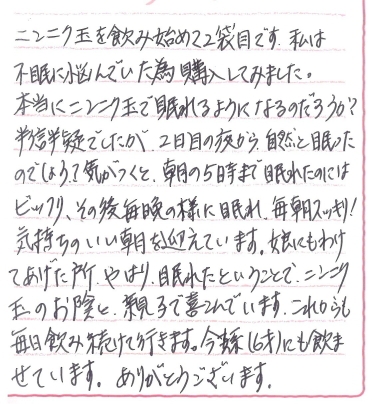 ニンニク玉を飲み始めて2袋目です。私は
不眠に悩んでいた為購入してみました。
本当にニンニク玉で眠れるようになるのだろうか?
半信半疑でしたが、2日目の夜から、自然と眠った
のでしょう?気がつくと、朝の5時まで眠れたのには
ビックリ、その後毎晩の様に眠れ、毎朝スッキリ!
気持ちのいい朝を迎えています。娘にもわけ
てあげた所、やはり、眠れたということで、ニンニク
玉のお陰と、親子で喜んでいます。これからも
毎日飲み続けて行きます。今孫(6才)にも飲ま
せています。ありがとうございます。